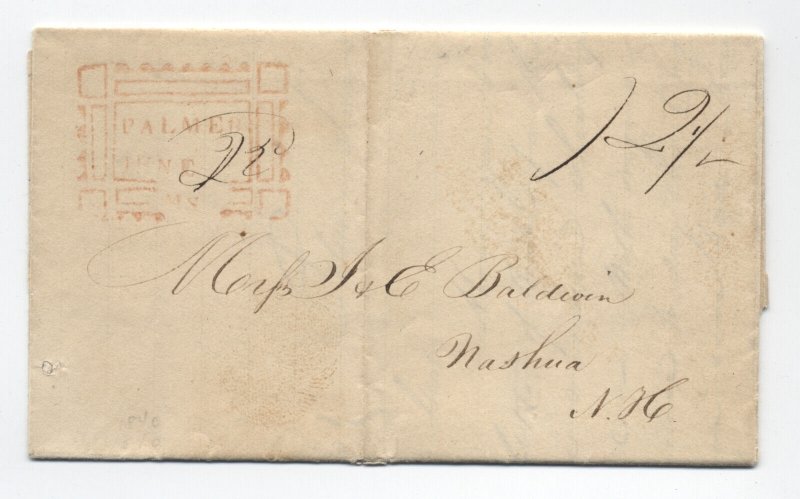 PALMER
JUNE 28
MS
12 1/2
Messrs J & E Baldwin
Nashua
N. H.